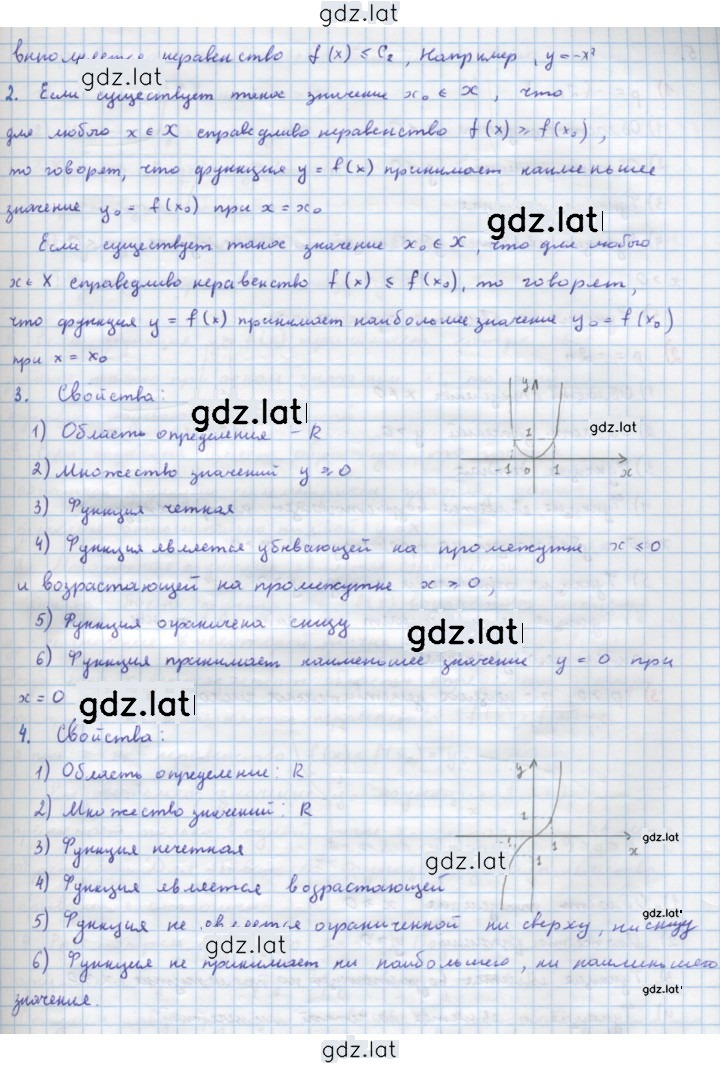 gdz.lat
неравенство f(x) ≤ C₂, Например, y = -x²
gdz.lat
2. Если существует такое значение x₀ ∈ X, что
для любого x ∈ X справедливо неравенство f(x) ≥ f(x₀),
то говорят, что функция y = f(x) принимает наименьшее
значение y₀ = f(x₀) при x = x₀
gdz.lat
Если существует такое значение x₀ ∈ X, что для любого
x ∈ X справедливо неравенство f(x) ≤ f(x₀), то говорят,
что функция y = f(x) принимает наибольшее значение y₀ = f(x₀)
при x = x₀
3. Свойства:
gdz.lat
1) Область определения – R
gdz.lat
2) Множество значений y ≥ 0
3) Функция четная
4) Функция является убывающей на промежутке x ≤ 0
и возрастающей на промежутке x ≥ 0,
5) Функция ограничена снизу
gdz.lat
6) Функция принимает наименьшее значение y = 0 при
x = 0
gdz.lat
y
1
-1 0 1 x
4. Свойства:
1) Область определение: R
2) Множество значений: R
3) Функция нечетная
4) Функция является возрастающей
5) Функция не ограниченной ни сверху, ни снизу
6) Функция не принимает ни наибольшего, ни наименьшего
значение.
y
1
-1 1 x
1
gdz.lat
gdz.lat
gdz.lat
gdz.lat
gdz.lat
gdz.lat